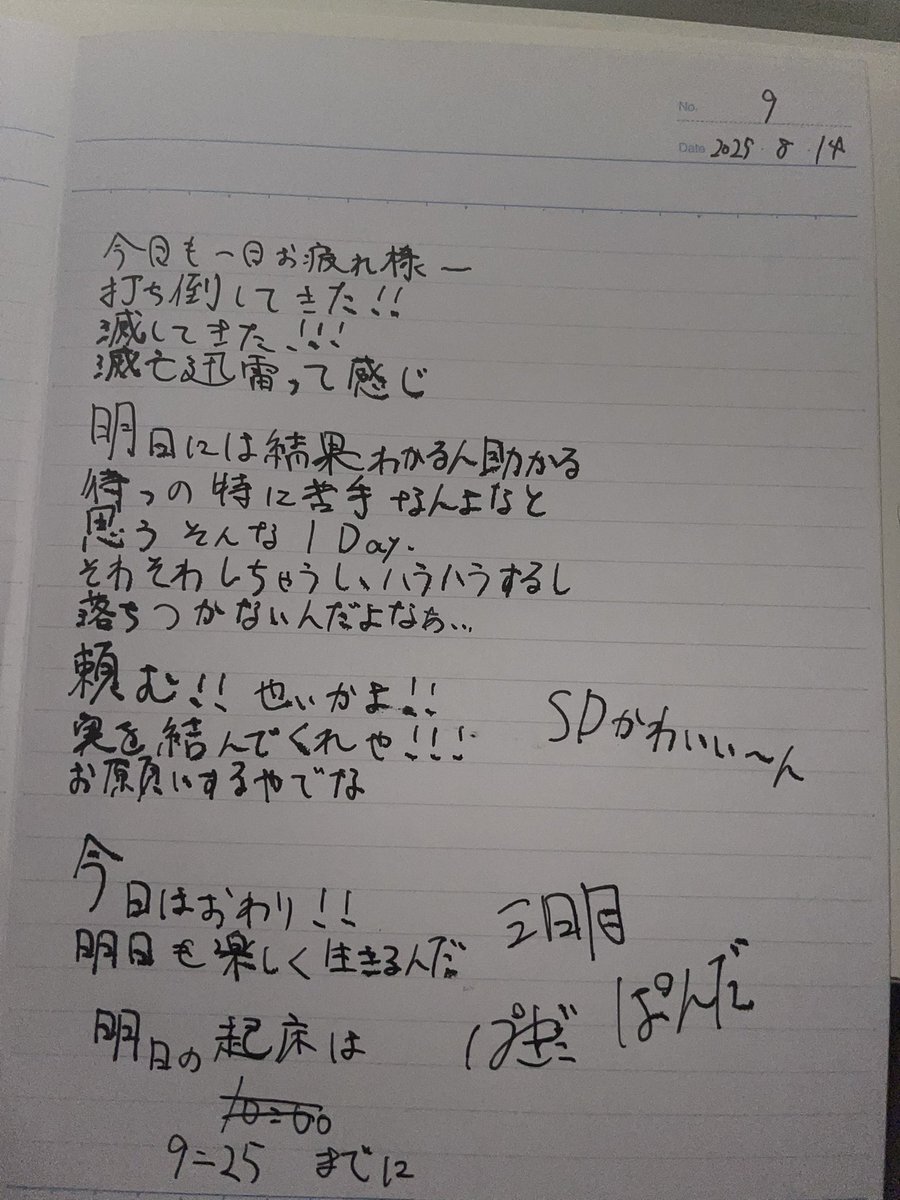 No. 9
Date 2025・8・14
今日も一日お疲れ様ー
打ち倒してきた!!
滅してきた!!!
滅亡迅雷って感じ
明日には結果わかるん助かる
待つの特に苦手なんよなと
思うそんな1Day.
そわそわしちゃうし、ハラハラするし
落ちつかないんだよなぁ...
頼む!!
実を結んでくれや!!!
お願いするやでな
SDかわいい〜ん
今日はおわり!!
明日も楽しく生きるんだ
三日目
ぱんだ
明日の起床は
10:00
9:25 までに